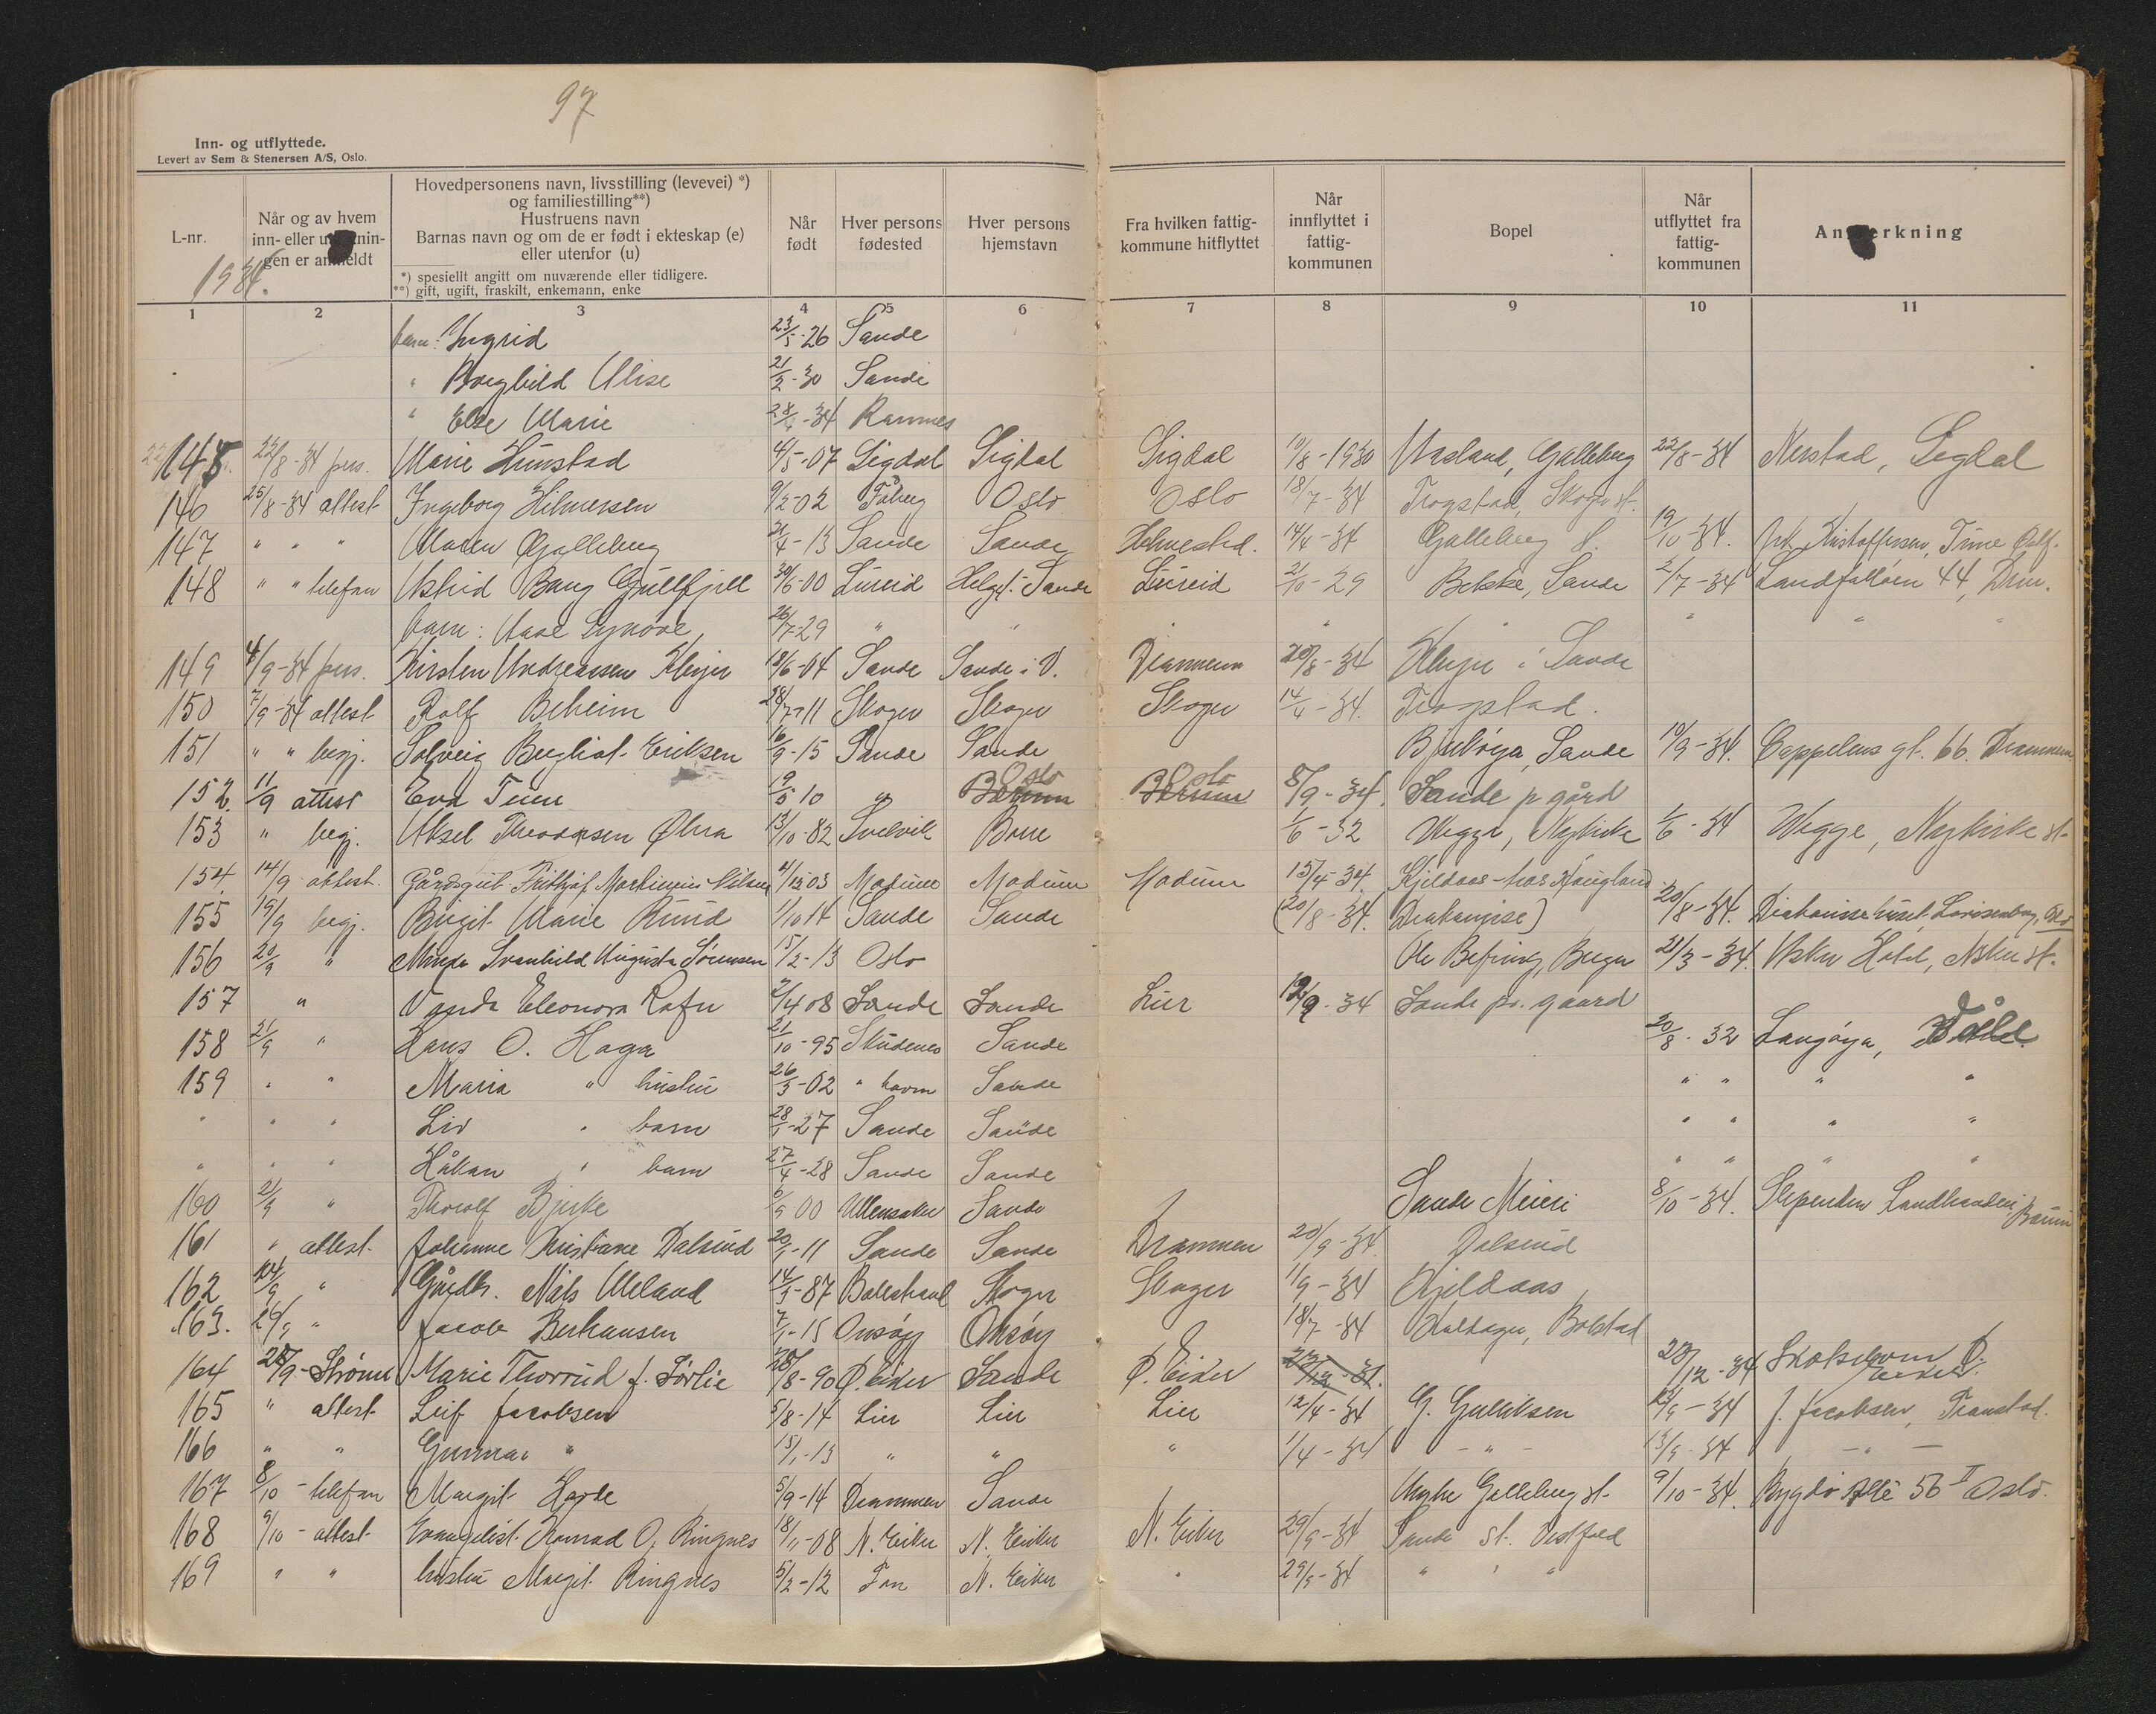 97
Inn- og utflyttede.
Levert av Sem & Stenersen A/S, Oslo.
L-nr. 1934.
Når og av hvem inn- eller utflytningen er anmeldt
Hovedpersonens navn, livsstilling (levevei) *) og familiestilling**) Hustruens navn Barnas navn og om de er født i ekteskap (e) eller utenfor (u)
*) spesiellt angitt om nuværende eller tidligere.
**) gift, ugift, fraskilt, enkemann, enke
Når født
Hver persons fødested
Hver persons hjemstavn
Fra hvilken fattigkommune hitflyttet
Når innflyttet i fattigkommunen
Bopel
Når utflyttet fra fattigkommunen
Anmerkning
1 2 3 4 5 6 7 8 9 10 11
barn: Ingrid 23/5-26 Sande
" Borghild Alise 21/2-30 Sande
" Else Marie 28/4-34 Ramnes
145. 22/8-34 pers. Marie Hunstad 4/5-07 Sigdal Sigdal Sigdal 10/8-1930 Aasland, Galleberg 22/8-34 Nerstad, Sigdal
146 25/8-34 attest Ingeborg Hilmersen 9/2-02 Fåberg Oslo Oslo 18/7-34 Trogstad, Skoger st.
147 " " " Maren Galleberg 21/4-13 Sande Sande Holmestrd. 14/4-34 Galleberg 19/10-34. Kristoffersen,
148 " " telefon Astrid Bang Gullfjell 30/6-00 Lureid Sande Lureid 21/10-29 Bekke, Sande 2/7-34 Landfalløen 44, Drm.
barn: Aase Synøve, 26/7-29 " " " " " "
149 4/9-34 pers. Kirsten Andreassen Klevjer 18/6-04 Sande Sande i V. Drammen 20/8-34 Klevjer i Sande
150 7/9-34 attest Rolf Beheim 28/7-11 Skoger Skoger Skoger 14/4-34. Trogstad.
151 " " begj. Solveig Bergliot Eriksen 16/9-15 Sande Sande Bjerkøya, Sande 10/9-34. Cappelens gt. 66. Drammen
152. 11/9 attest Eva Teien 19/5 10 " Oslo Oslo 8/9-34. Sande p gård
153 " begj. Aksel Theodorsen Øhra 13/10-82 Svelvik Borre 1/6-32 Vegge, Nykirke 1/6-34 Vegge, Nykirke st-
154. 14/9 attest. Gårdsgut Fridtjof Martinius Nilsen 4/12 03 Modum Modum Modum 15/4-34. Kjeldaas - hos Haugland
155 19/9 begj. Birgit Marie Rund 1/10 14 Sande Sande (20/8-34. Diakonisse) 20/8-34. Diakonissehuset, Lovisenberg, Oslo
156 20/9 " Minda Svanhild Augusta Sørensen 15/2-13 Oslo Ole Befring, Berger 21/3-34. Asker Hotel, Asker st.
157 " Vanda Eleonora Rafn 2/4 08 Sande Sande Lier 12/9-34 Sande pr. gaard
158 21/9 " Hans O. Haga 21/10-95 Skudenes Sande 20/8-32 Langøya, Våle
159 " " Maria " hustru 26/3-02 " havn Sande " " " "
" " " Liv " barn 28/1-27 Sande Sande " " " "
" " " Håkon " barn 27/4-28 Sande Sande " " " "
160 21/9 " Thorolf Bjerke 6/9 00 Ullensaker Sande Sande Meieri 8/10-34. Slependen Landhandleri, Bærum
161 " attest. Johanne Kristiane Dalseud 20/1-11 Sande Sande Drammen 20/9-34. Dalseud
162 24/9 " Gårdbr. Nils Meland 14/3-87 Balestrand Skoger Skoger 11/9-34 Kjeldaas
163. 26/9 " Jacob Berhausen 7/1-15 Onsøy Onsøy 18/7-34 Bolstad
164 28/9- Marie Thorrud f. Sørlie 28/8-90 Ø. Eiker Sande Ø. Eiker 23/12-31. 20/12-34 Skotselven Ø. Eiker.
165 " attest Leif Jacobsen 5/8-14 Lier Lier Lier 12/4-34 G. Gulliksen 13/9-34 J. Jacobsen, Transtad.
166 " " Gunnar " 15/1-13 " " " 1/4-34 - " - 13/9-34 - " -
167 8/10 - telefon Margit Horde 5/9-14 Drammen Sande Galleberg st. 9/10-34. Bygdø Alle 56 I Oslo.
168 9/10 - attest Evangelist. Konrad O. Ringnes 18/11-08 N. Eiker N. Eiker N. Eiker 29/9-34 Sande st. Vestfold
169 " " hustru Margit Ringnes 5/2-12 N. Eiker " 29/9-34 " " "